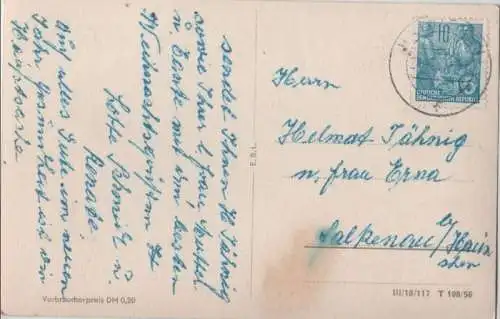 sendet Ihnen H. Jähnig
sowie Ihrer l. Frau Mutter
u. Tante mit den besten
Weihnachtsgrüßen Ihre
Lotte Schmidt u.
Renate.
Auf alles Gute im neuen
Jahr
Hauptsache
Herrn
Helmat Jähnig
u. Frau Erna
Falkenau b/Hain
chen
E.B.L.
10
DEUTSCHE
DEMOKRATISCHE REPUBLIK
Verbraucherpreis DM 0,20
III/18/117 T 198/56